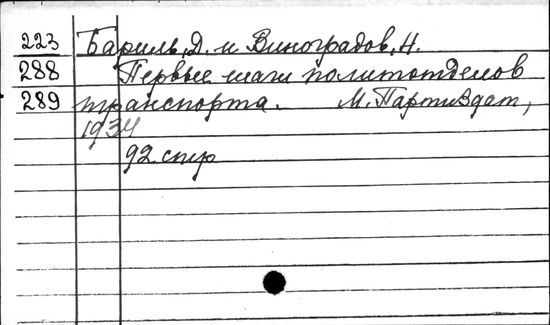 223 Бариль, Д. и Виноградов, Н.
288 Первые шаги политотделов
289 транспорта. М. Партиздат,
1934
92 стр